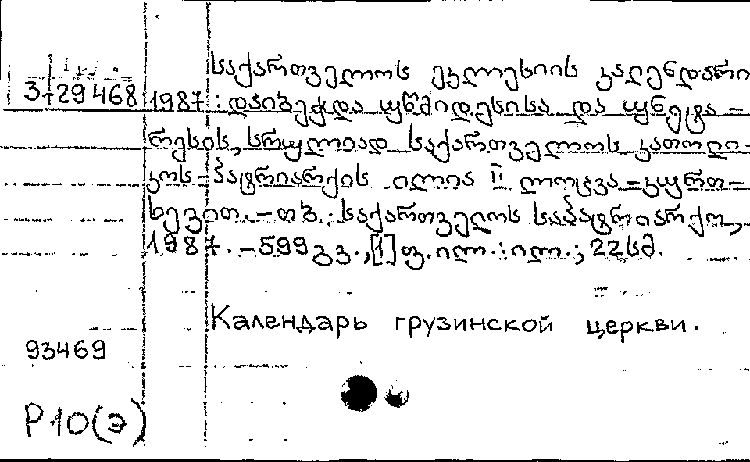 საქართველოს ეკლესიის კალენდარი
3-29468 1987 : დაიბეჭდა უწმიდესისა და უნეტა-
რესის, სრულიად საქართველოს კათოლი-
კოს-პატრიარქის ილია II ლოცვა-კურთ-
ხევით. – თბ. : საქართველოს საპატრიარქო,
1987. – 599 გვ., [1] ფ. ილ. : ილ. ; 22 სმ.
Календарь грузинской церкви.
93469
Р10(Э)